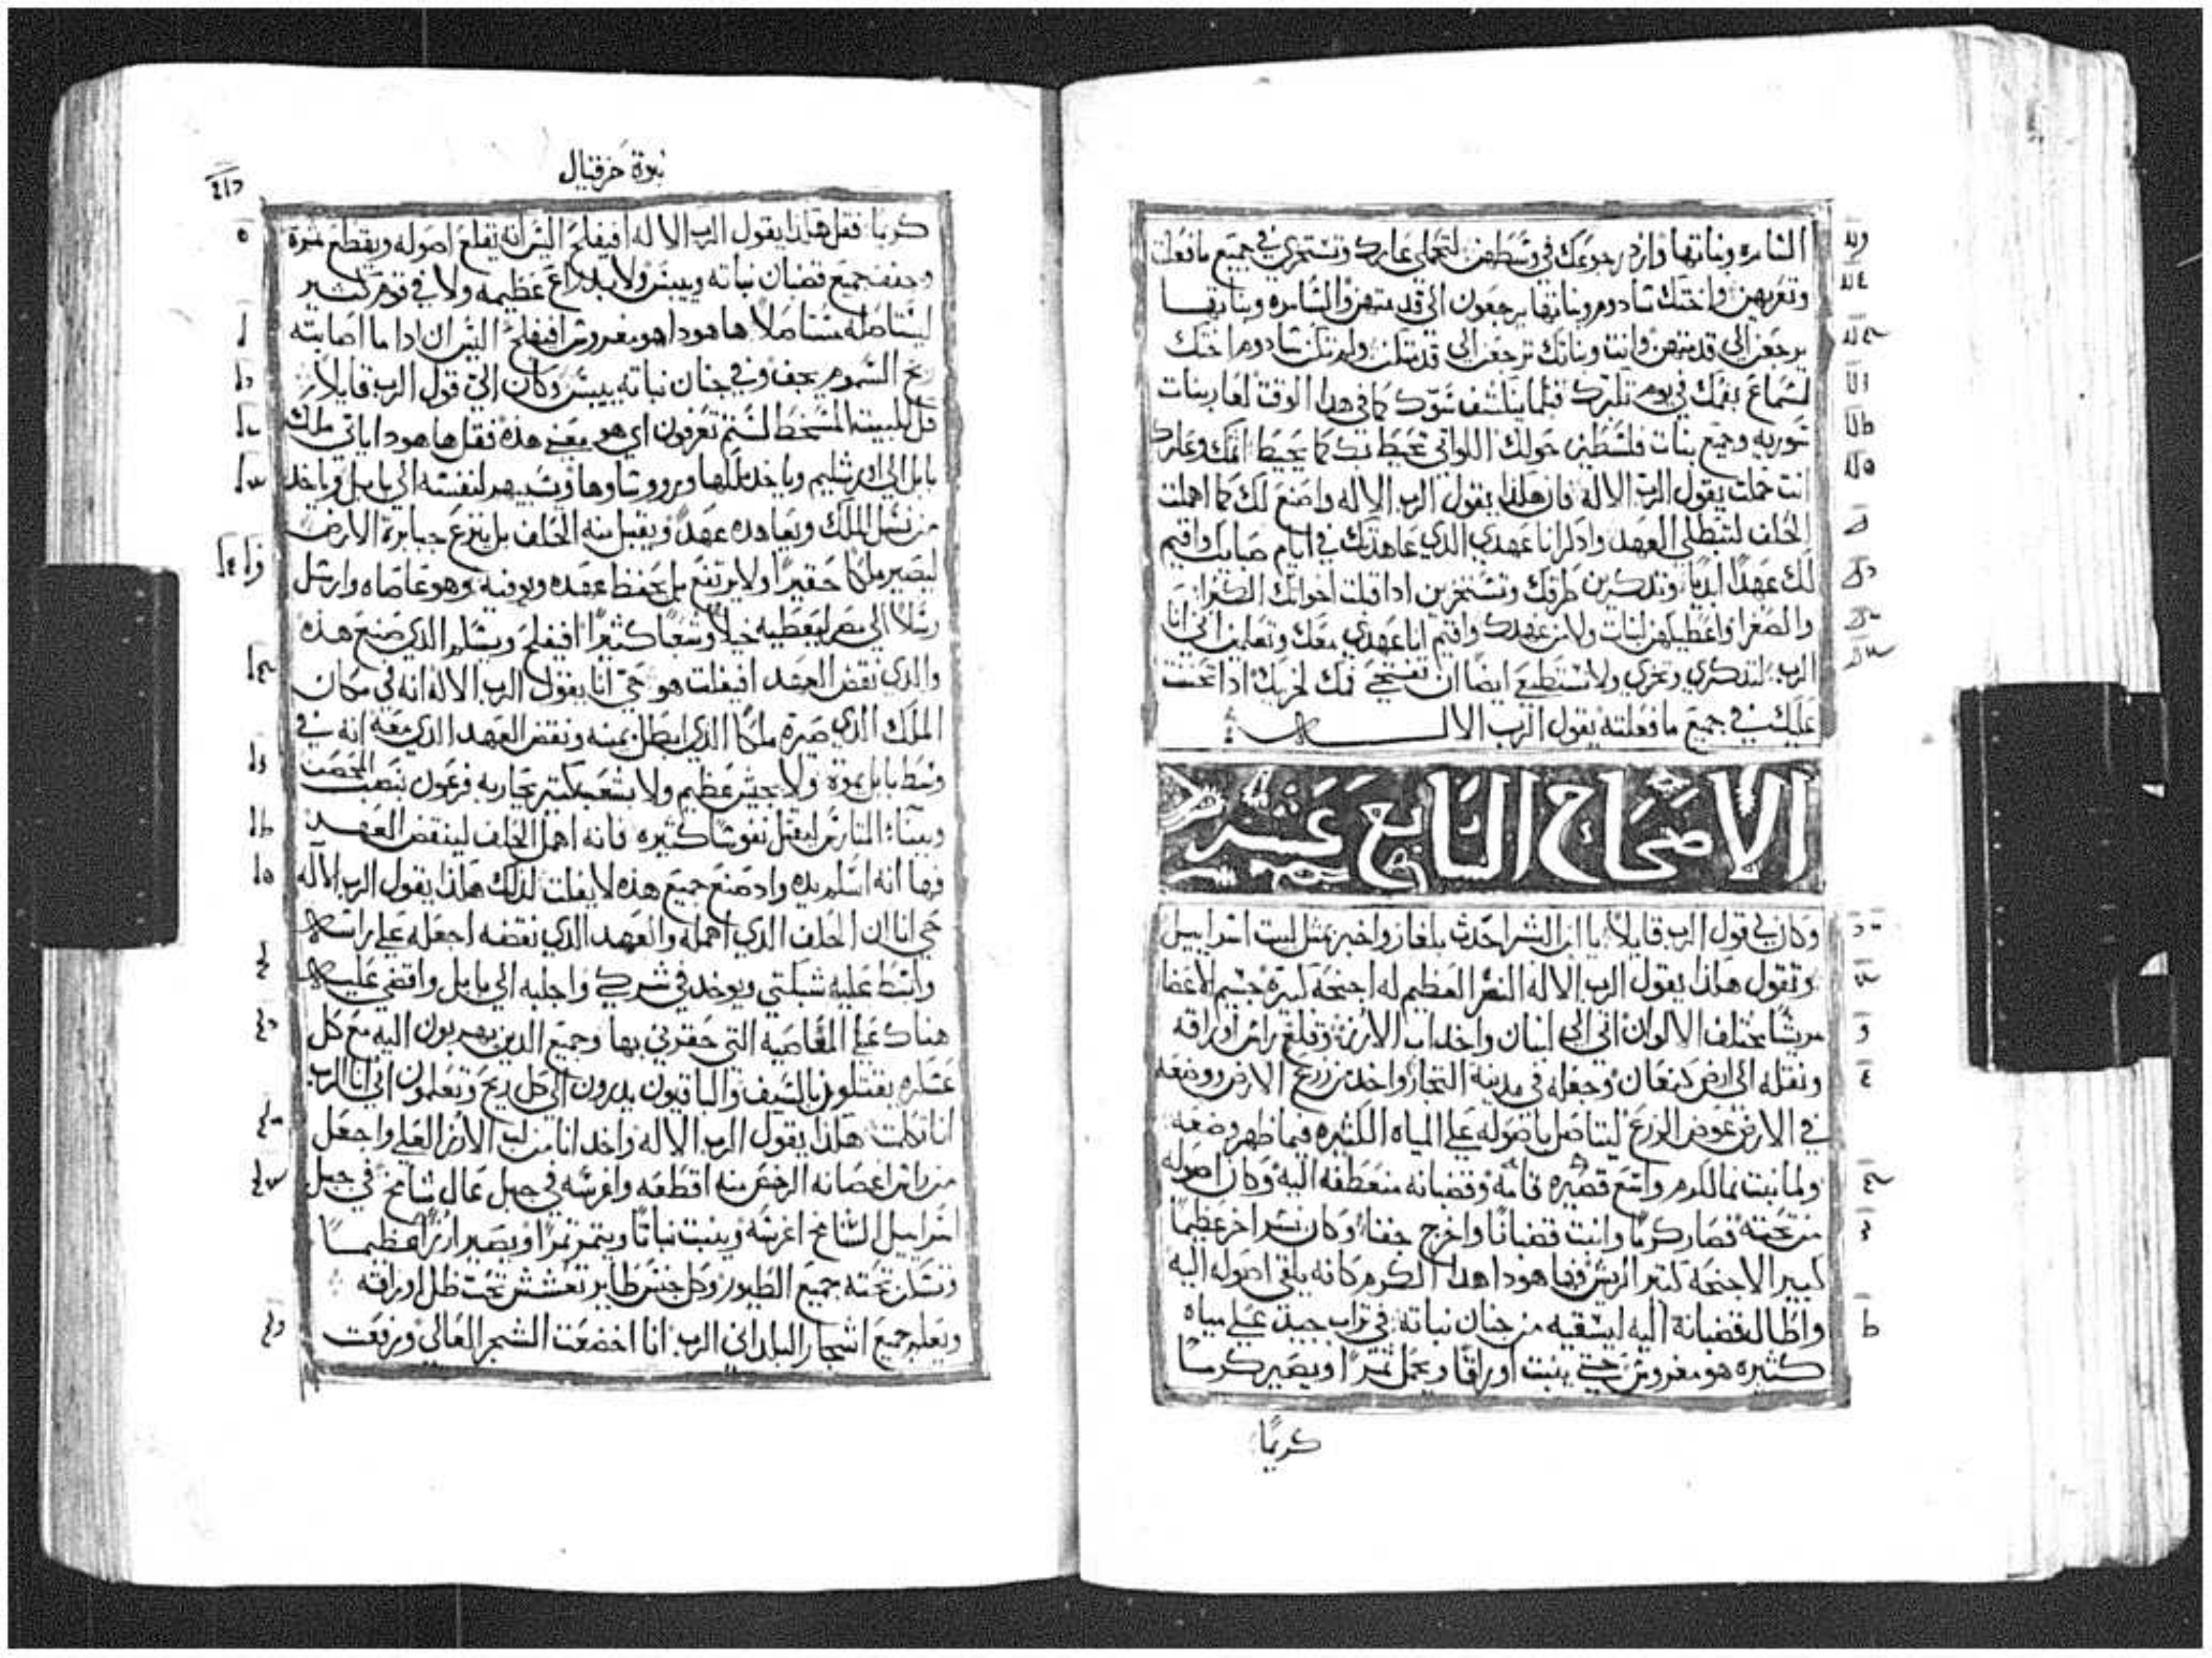 السامره وبناتها وارد رجوعك في وسطهن لتحملي عارك وتستخزي في جميع ما فعلت
وتعزيهن واختك سادوم وبناتها يرجعون الى قدمتهن والسامرة وبناتها
يرجعن الى قدمتهن وانت وبناتك ترجعن الى قدمتكن ولم تكن سادوم اختك
لسماع بفمك في يوم تكبرك قبلما ينكشف سوك كما في هذا الوقت لعار بنات
سوريه وجميع بنات فلسطين حولك اللواتي تحيط بك كما يحيط اثمك وعارك
انت حملت يقول الرب الاله فان هكذا يقول الرب الاله واصنع لك كما اهملت
الحلف لتبطلي العهد واذكر انا عهدي الذي عاهدتك في ايام صبايك واقيم
لك عهدًا ابديًا وتذكرين طرقك وتستخزين اذا قبلت اخواتك الكبرا
والصغرا واعطيكهن لبنات ولا من عهدك واقيم انا عهدي معك وتعلمين اني انا
الرب لتذكري وتخزي ولا تستطيعي ايضًا ان تفتحي فمك لخزيك اذا تحننت
عليك في جميع ما فعلته يقول الرب الاله
الاصحاح السابع عشر
وكان في قول الرب قايلًا يا ابن البشر احدث بالغاز واخبر بمثل لبيت اسراييل
وتقول هكذا يقول الرب الاله النسر العظيم له اجنحة كبيرة جسيم الاعضا
مريشًا مختلف الالوان اتى الى لبنان واخذ لب الارزة وقلع راس اوراقه
ونقله الى ارض كنعان وجعله في مدينة التجار واخذ من زرع الارض ووضعه
في الارض عوض الزرع ليتاصل باصوله على المياه الكثيره فيما ظهر وضعه
ولما نبت نما لكرم واسع قصيره قامة وقضبانه منعطفه اليه وكان اصوله
من تحته فصار كرمًا وانبت قضبانًا واخرج جفنا وكان نسر اخر عظيمًا
كبير الاجنحة كتير الريش وها هوذا هذا الكرم كانه يلقي اصوله اليه
واطال قضبانة اليه ليسقيه من جنان نباته في تراب جيد على مياه
كثيره هو مغروس حتى ينبت اوراقًا ويحمل ثمرًا ويصير كرمًا
كريمًا
نبوة حزقيال
كريمًا فقل هكذا يقول الرب الاله افيفلح اليس انه يقلع اصوله ويقطع ثمرة
وجفف جميع قضبان نباته وييبس ولا بذراع عظيمه ولا في قوم كثير
ليستاصله مستاصلًا ها هوذا هو مغروس افيفلح اليس ان اذا ما اصابته
ريح السموم يجف وفي جنان نباته ييبس وكان الي قول الرب قايلًا
قل للبيت المسخط لستم تعرفون اي هو معنى هذة فقل ها هوذا ياتي ملك
بابل الى اورشليم وياخذ ملكها وروساوها وتسيبهم لنفسه الى بابل وياخذ
من نسل الملك ويعاهده عهدًا ويقبل منه الحلف بل ينزع جبابرة الارض
ليصير ملكًا حقيرًا ولا يرتفع بل يحفظ عقده ويوفيه وهو عاصاه وارسل
رسلًا الى مصر ليعطيه خيلًا وشعبًا كثيرًا افيفلح ويسلم الذي صنع هذه
والذي نقض العهد افيفلت هو حي انا يقول الرب الاله انه في مكان
الملك الذي صيرة ملكًا الذي ابطل يمينه ونقض العهد الذي معه انه في
وسط بابل يموة ولا بجيش عظيم ولا بشعب كتير يحاربه فرعون بنصب المحصن
وببناء المتارس ليقتل نفوسًا كثيره فانه اهمل الحلف لينقض العهد
فها انه اسلم يده واد صنع جميع هذه لا يفلت لذلك هكذا يقول الرب الاله
حي انا ان الحلف الذي اهمله والعهد الذي نقضه اجعله على راسه
وابسط عليه شبكتي ويوخذ في شركي واجلبه الى بابل واقضي عليه
هناك على المعاصية التي حقرني بها وجميع الذين يهربون اليه مع كل
عسكره يقتلون بالسيف والباقيون يدرون الى كل ريح وتعلمون اني انا الرب
انا تكلمت هكذا يقول الرب الاله واخذ انا من لب الارز العلي واجعل
من راس اغصانه الرخص منه اقطعه واغرسه في جبل عال شامخ في جبل
اسراييل الشامخ اغرسه وينبت نباتًا ويتمر تمرًا ويصير ارزًا عظيمًا
وتسكن تحته جميع الطيور وكل جنس طاير تعشش تحت ظل اوراقه
ويعلم جميع اشجار البلد اني الرب انا اخضعت الشجر العالي ورفعت